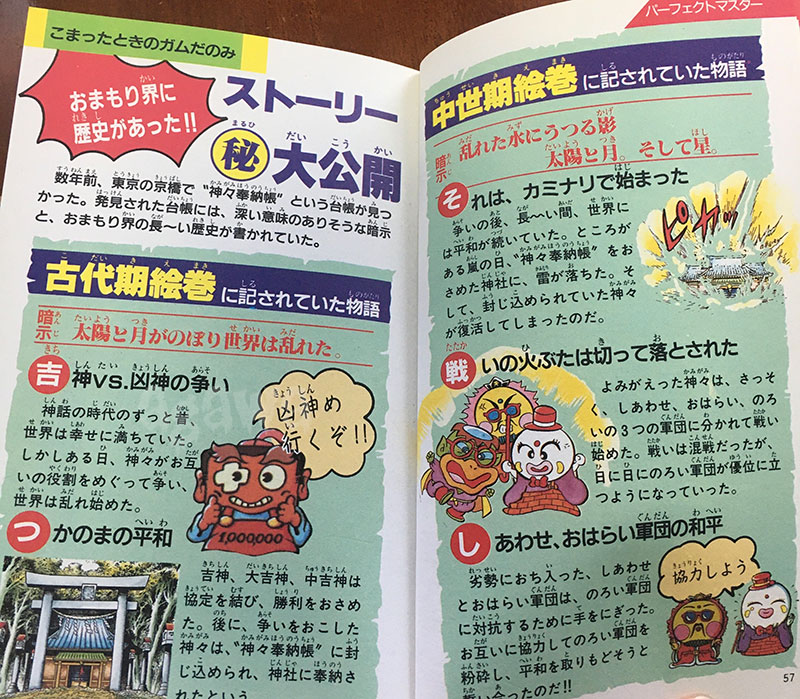 こまったときのガムだのみ
おまもり界に
歴史があった!!
ストーリー
㊙大公開
数年前、東京の京橋で〝神々奉納帳〟という台帳が見つ
かった。発見された台帳には、深い意味のありそうな暗示
と、おまもり界の長〜い歴史が書かれていた。
古代期絵巻に記されていた物語
暗示 太陽と月がのぼり世界は乱れた。
吉神vs.凶神の争い
神話の時代のずっと昔、
世界は幸せに満ちていた。
しかしある日、神々がお互
いの役割をめぐって争い、
世界は乱れ始めた。
凶神め
行くぞ!!
1,000,000
つかのまの平和
吉神、大吉神、中吉神は
協定を結び、勝利をおさめ
た。後に、争いをおこした
神々は、〝神々奉納帳〟に封
じ込められ、神社に奉納さ
れたという
パーフェクトマスター
中世期絵巻に記されていた物語
暗示 乱れた水にうつる影
太陽と月。そして星。
それは、カミナリで始まった
争いの後、長〜い間、世界に
は平和が続いていた。ところが
ある嵐の日、〝神々奉納帳〟をお
さめた神社に、雷が落ちた。そ
して、封じ込められていた神々
が復活してしまったのだ。
ピカッ
戦いの火ぶたは切って落とされた
よみがえった神々は、さっそ
く、しあわせ、おはらい、のろ
いの3つの軍団に分かれて戦い
始めた。戦いは混戦だったが、
日に日にのろい軍団が優位に立
つようになっていった。
しあわせ、おはらい軍団の和平
劣勢におち入った、しあわせ
とおはらい軍団は、のろい軍団
に対抗するために手をにぎった。
お互いに協力してのろい軍団を
粉砕し、平和を取りもどそうと
協力しよう
57